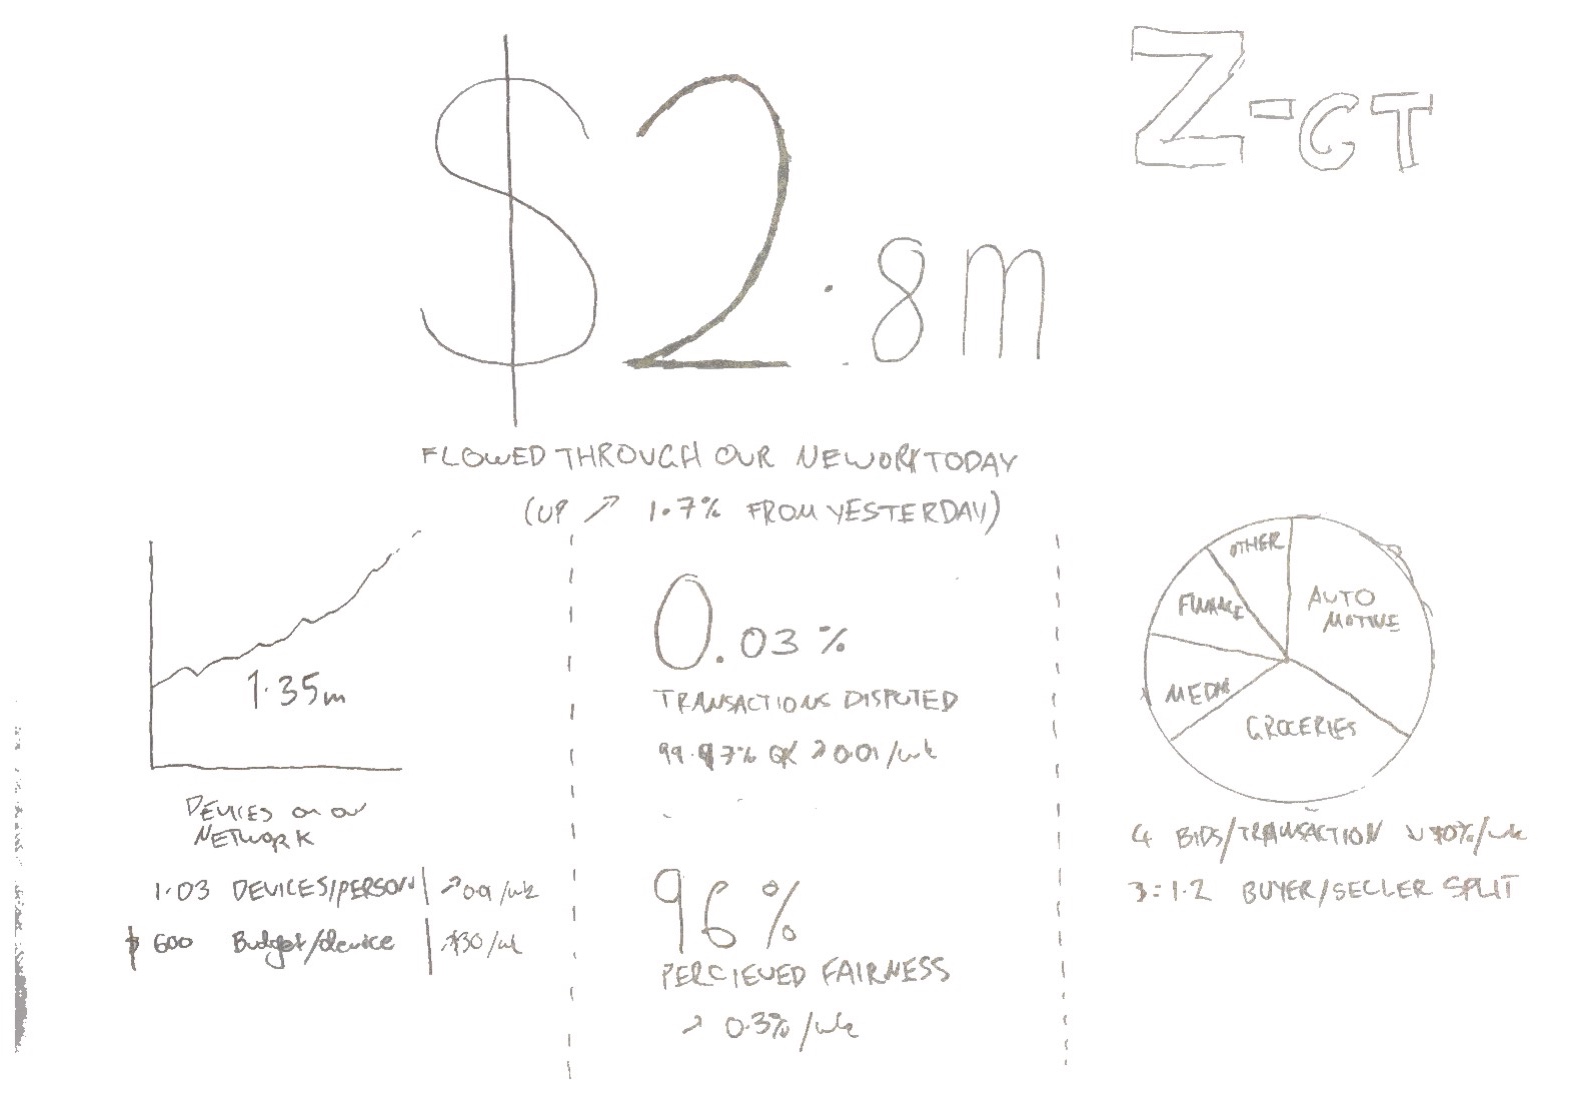 Z-CT
$2.8m
FLOWED THROUGH OUR NEWORK TODAY
(UP ↗ 1.7% FROM YESTERDAY)
1.35m
DEVICES on our
NETWORK
1.03 DEVICES/PERSON | ↗0.01/wk
$600 Budget/device | ↗$30/wk
0.03%
TRANSACTIONS DISPUTED
99.97% OK ↗0.01/wk
96%
PERCIEVED FAIRNESS
↗ 0.3%/wk
OTHER
AUTO
MOTIVE
FINANCE
MEDIA
GROCERIES
4 BIDS/TRANSACTION ↘ 10%/wk
3:1.2 BUYER/SELLER SPLIT